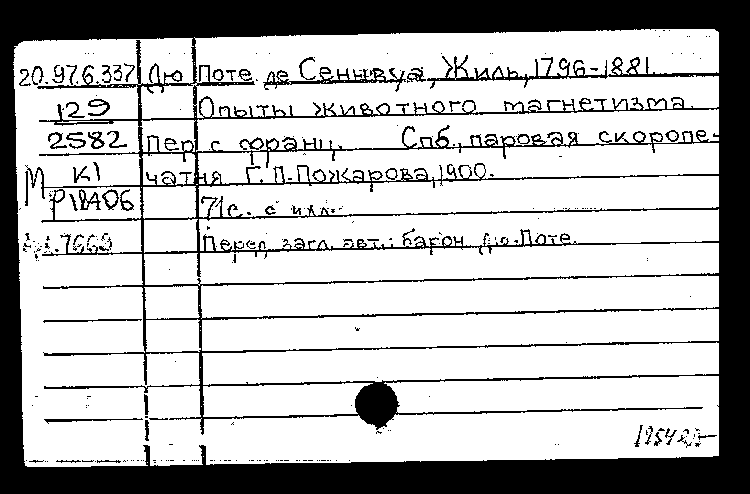 20.97.6.337 Дю Поте де Сеннвуа, Жиль, 1796-1881.
129 Опыты животного магнетизма.
2582 Пер. с франц. Спб., паровая скоропе-
М К1 чатня Г.П. Пожарова, 1900.
Р18406 71с. с илл.
7669 Перед загл. авт.: барон Дю-Поте.
1954